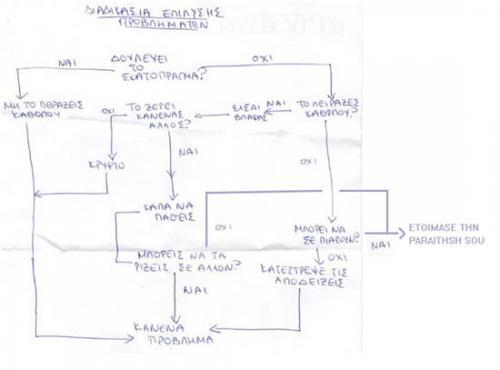 ΔΙΑΔΙΚΑΣΙΑ ΕΠΙΛΥΣΗΣ
ΠΡΟΒΛΗΜΑΤΩΝ
ΝΑΙ
ΔΟΥΛΕΥΕΙ
ΤΟ
ΣΚΑΤΟΠΡΑΓΜΑ?
ΟΧΙ
ΜΗ ΤΟ ΠΕΙΡΑΞΕΙΣ
ΚΑΘΟΛΟΥ
ΟΧΙ
ΤΟ ΞΕΡΕΙ
ΚΑΝΕΝΑΣ
ΑΛΛΟΣ?
ΕΙΣΑΙ
ΒΛΑΚΑΣ
ΝΑΙ
ΤΟ ΠΕΙΡΑΞΕΣ
ΚΑΘΟΛΟΥ?
ΚΡΥΨΤΟ
ΝΑΙ
ΟΧΙ
ΚΑΛΑ ΝΑ
ΠΑΘΕΙΣ
ΟΧΙ
ΜΠΟΡΕΙ ΝΑ
ΣΕ ΠΙΑΣΟΥΝ?
ΝΑΙ
ETOIMASE THN
PARAITHSH SOU
ΜΠΟΡΕΙΣ ΝΑ ΤΑ
ΡΙΞΕΙΣ ΣΕ ΑΛΛΟΝ?
ΟΧΙ
ΚΑΤΕΣΤΡΕΨΕ ΤΙΣ
ΑΠΟΔΕΙΞΕΙΣ
ΝΑΙ
ΚΑΝΕΝΑ
ΠΡΟΒΛΗΜΑ